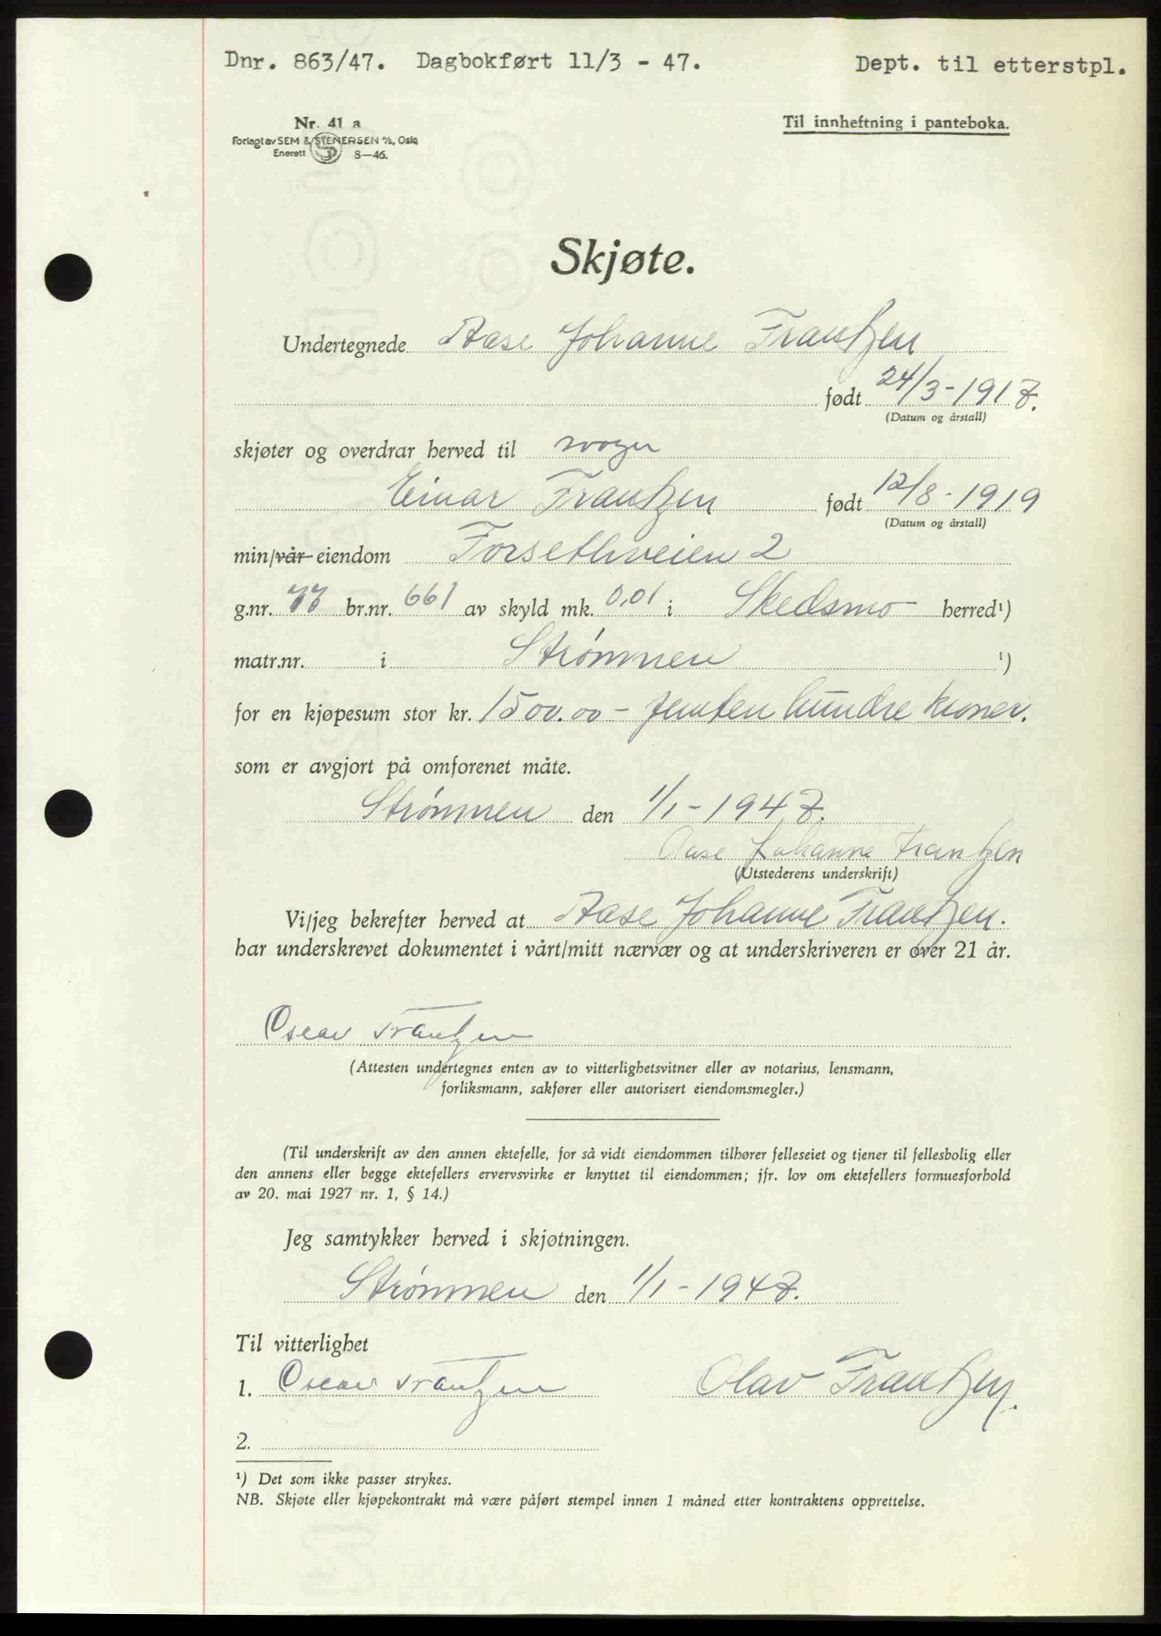 Dnr. 863/47. Dagbokført 11/3 - 47. Dept. til etterstpl.
Nr. 41 a
Til innheftning i panteboka.
Forlagt av SEM & STENERSEN A/S, Oslo
Enerett 8—46.
Skjøte.
Undertegnede Aase Johanne Frantzen
født 24/3-1917.
(Datum og årstall)
skjøter og overdrar herved til svoger
Einar Frantzen født 12/8-1919
(Datum og årstall)
min/vår eiendom Forsethveien 2
g.nr. 77 br.nr. 661 av skyld mk. 0,01 i Skedsmo herred¹)
matr.nr. i Strømmen ¹)
for en kjøpesum stor kr. 1500.00 - femten hundre kroner.
som er avgjort på omforenet måte.
Strømmen den 1/1-1947.
Aase Johanne Frantzen
(Utstederens underskrift)
Vi/jeg bekrefter herved at Aase Johanne Frantzen.
har underskrevet dokumentet i vårt/mitt nærvær og at underskriveren er over 21 år.
Oscar Frantzen
(Attesten undertegnes enten av to vitterlighetsvitner eller av notarius, lensmann,
forliksmann, sakfører eller autorisert eiendomsmegler.)
(Til underskrift av den annen ektefelle, for så vidt eiendommen tilhører felleseiet og tjener til fellesbolig eller
den annens eller begge ektefellers ervervsvirke er knyttet til eiendommen; jfr. lov om ektefellers formuesforhold
av 20. mai 1927 nr. 1, § 14.)
Jeg samtykker herved i skjøtningen.
Strømmen den 1/1-1947.
Til vitterlighet
1. Oscar Frantzen Olav Frantzen.
2.
¹) Det som ikke passer strykes.
NB. Skjøte eller kjøpekontrakt må være påført stempel innen 1 måned etter kontraktens opprettelse.